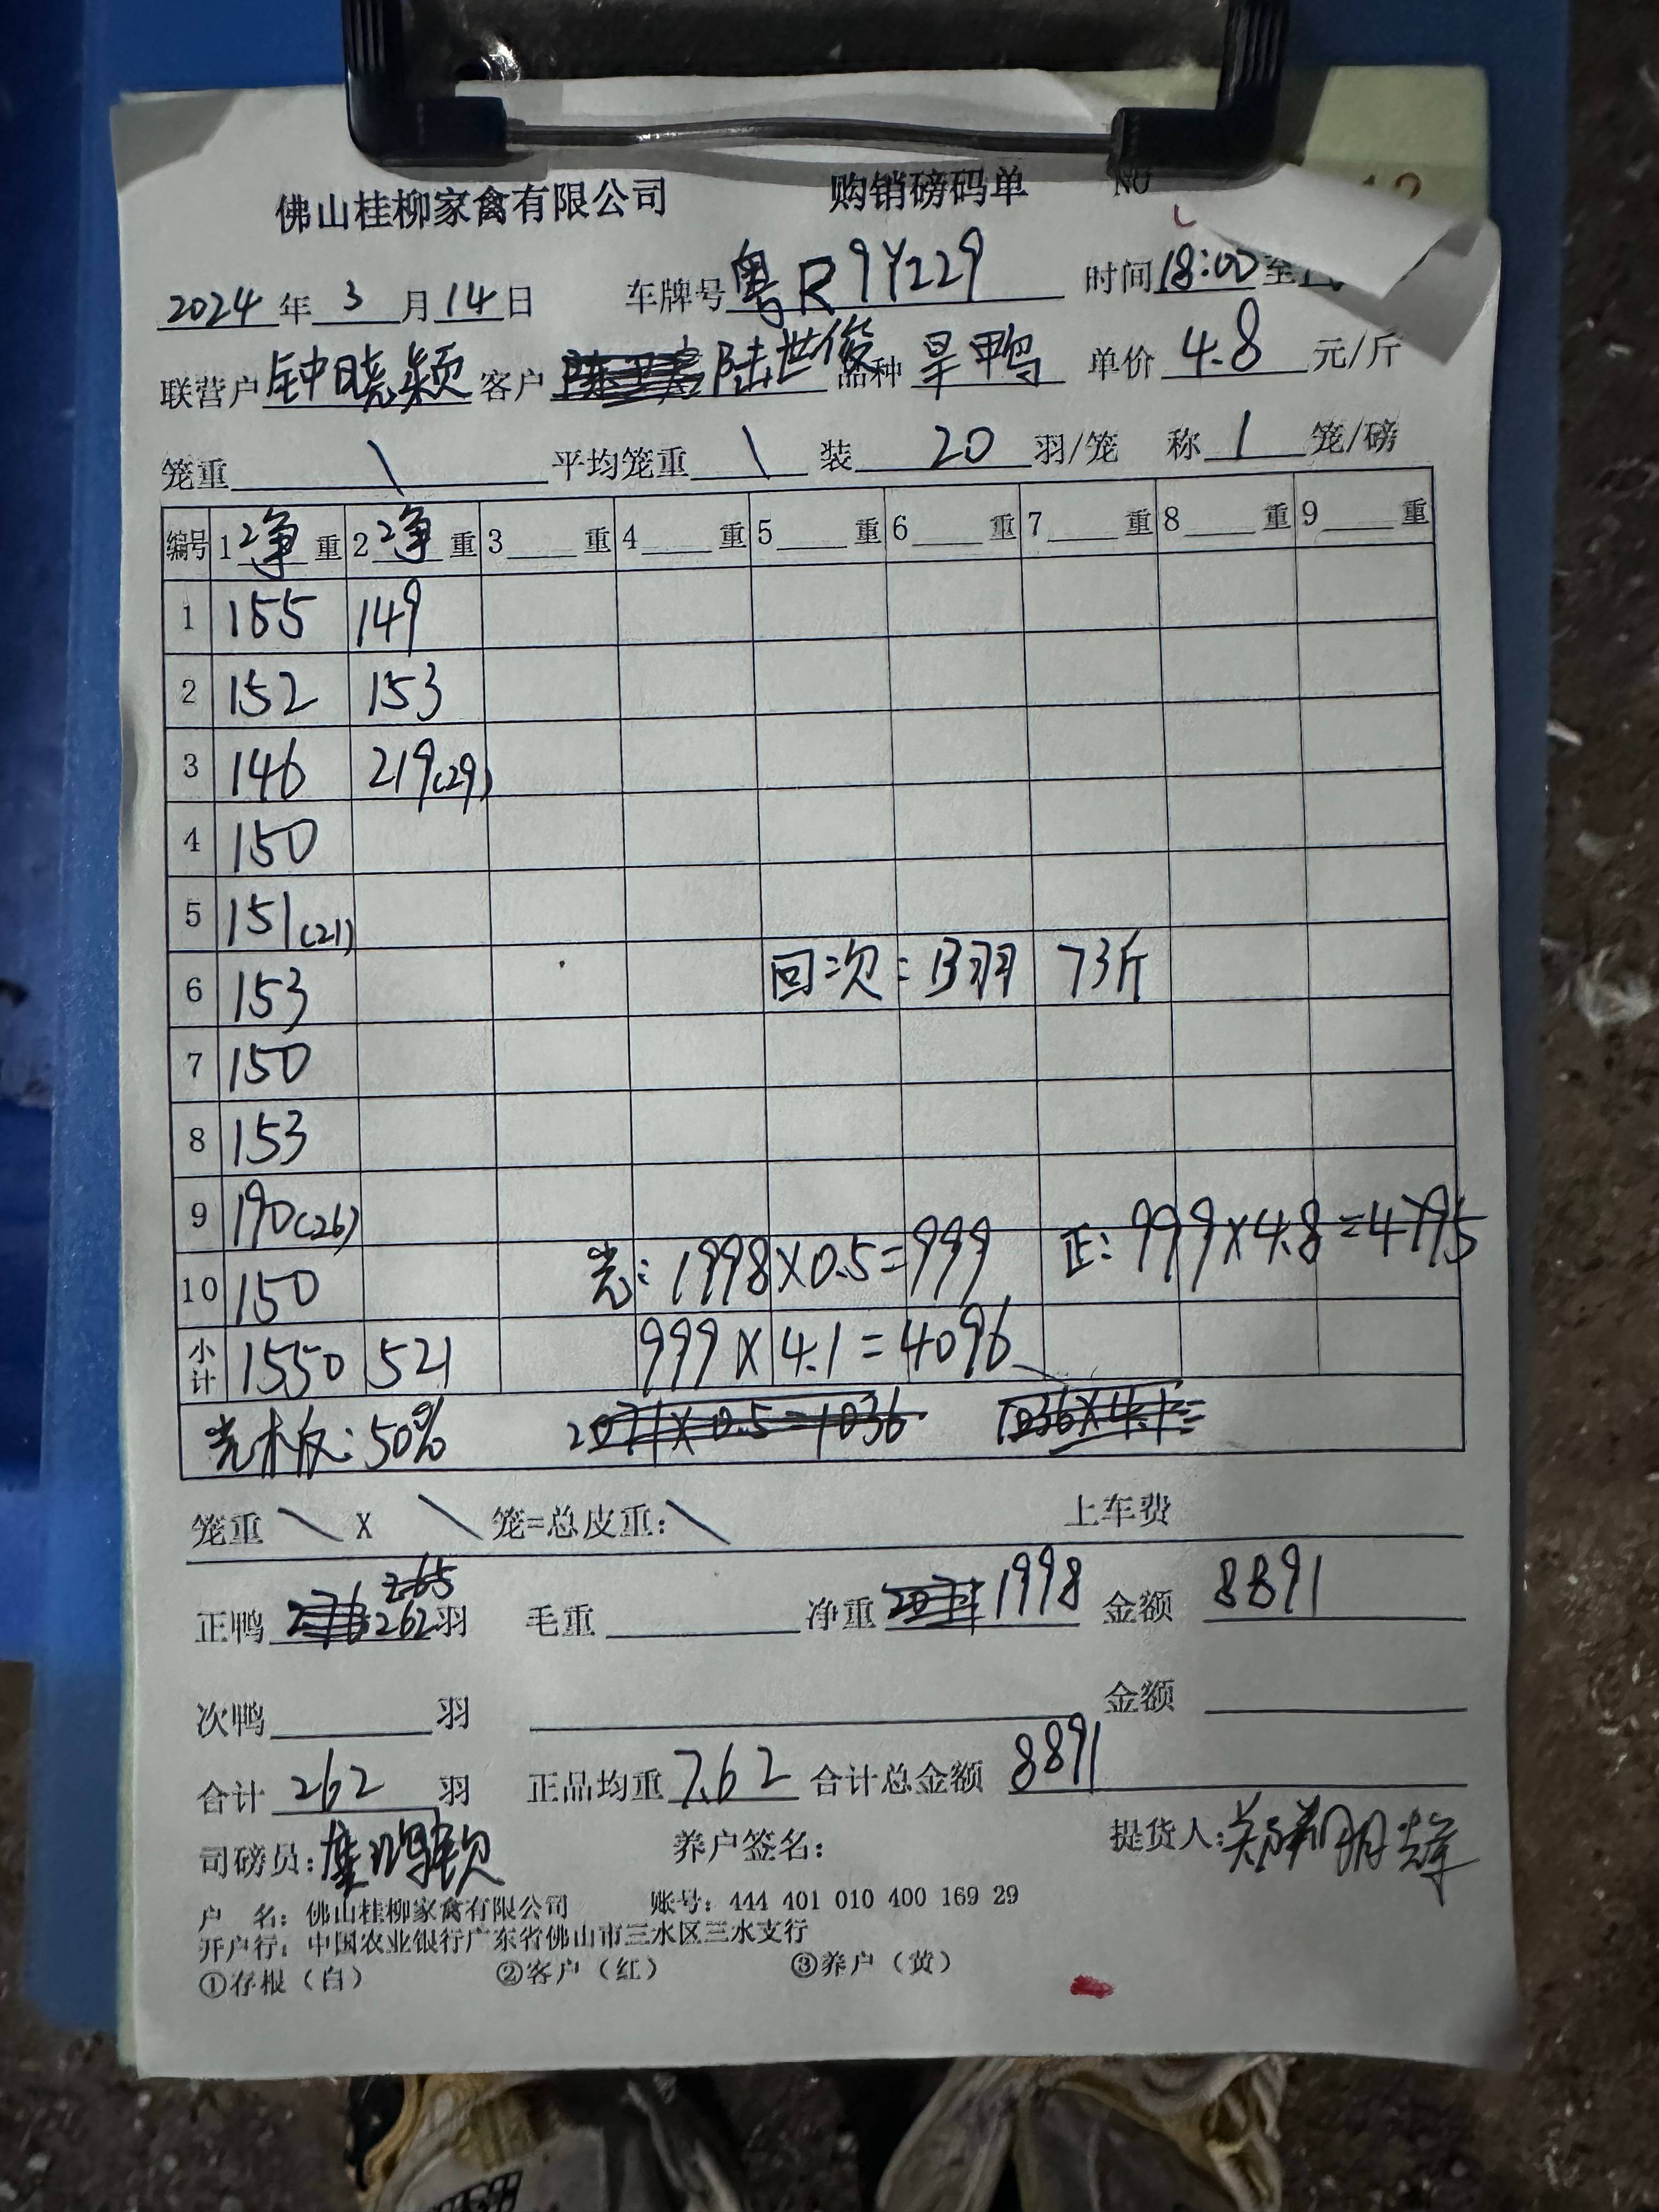 佛山桂柳家禽有限公司 购销磅码单 NO
2024年3月14日 车牌号粤R9Y229 时间18:00至
联营户钟晓颖 客户陆世俊 品种旱鸭 单价4.8元/斤
笼重\ 平均笼重\ 装20羽/笼 称1笼/磅
编号 1净重 2净重 3重 4重 5重 6重 7重 8重 9重
1 155 149
2 152 153
3 146 219(29)
4 150
5 151(21)
6 153 回次:13羽 73斤
7 150
8 153
9 190(26)
10 150 光:1998×0.5=999 正:999×4.8=4795
小计 1550 521 999×4.1=4096
光木板:50% 2071×0.5=1036 1036×4.1=
笼重\X\笼=总皮重:\ 上车费
265
正鸭 262羽 毛重 净重 1998 金额 8891
次鸭 羽 金额
合计 262 羽 正品均重 7.62 合计总金额 8891
司磅员: 养户签名: 提货人:
户 名:佛山桂柳家禽有限公司 账号:444 401 010 400 169 29
开户行:中国农业银行广东省佛山市三水区三水支行
①存根(白) ②客户(红) ③养户(黄)